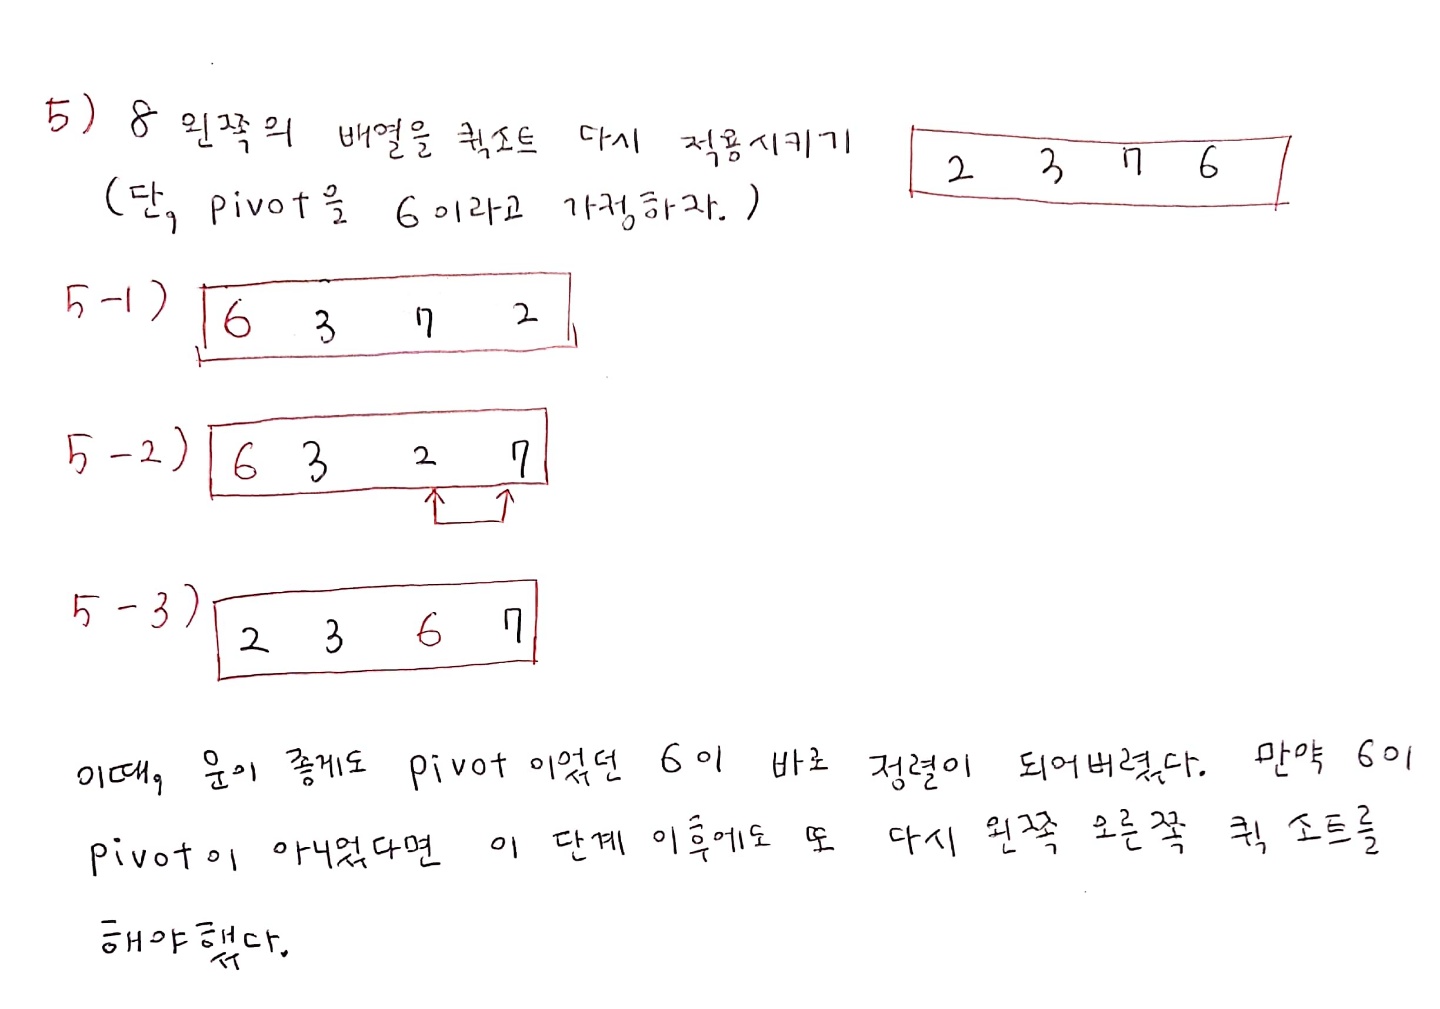 5) 8 왼쪽의 배열을 퀵소트 다시 적용시키기
2 3 7 6
(단, pivot을 6이라고 가정하자.)
5-1) 6 3 7 2
5-2) 6 3 2 7
5-3) 2 3 6 7
이때, 운이 좋게도 pivot이었던 6이 바로 정렬이 되어버렸다. 만약 6이
pivot이 아니었다면 이 단계 이후에도 또 다시 왼쪽 오른쪽 퀵 소트를
해야했다.